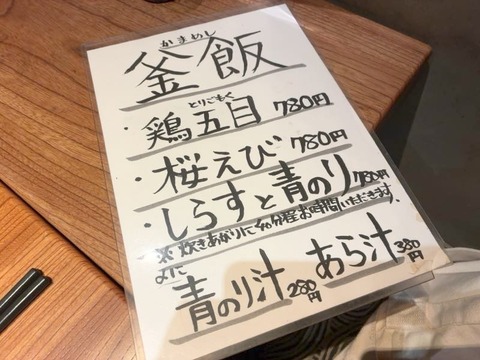 かまめし
釜飯
とりごもく
・鶏五目 780円
・桜えび 780円
・しらすと青のり 780円
※炊きあがりに40分程お時間いただきます。
青のり汁 280円 あら汁 380円